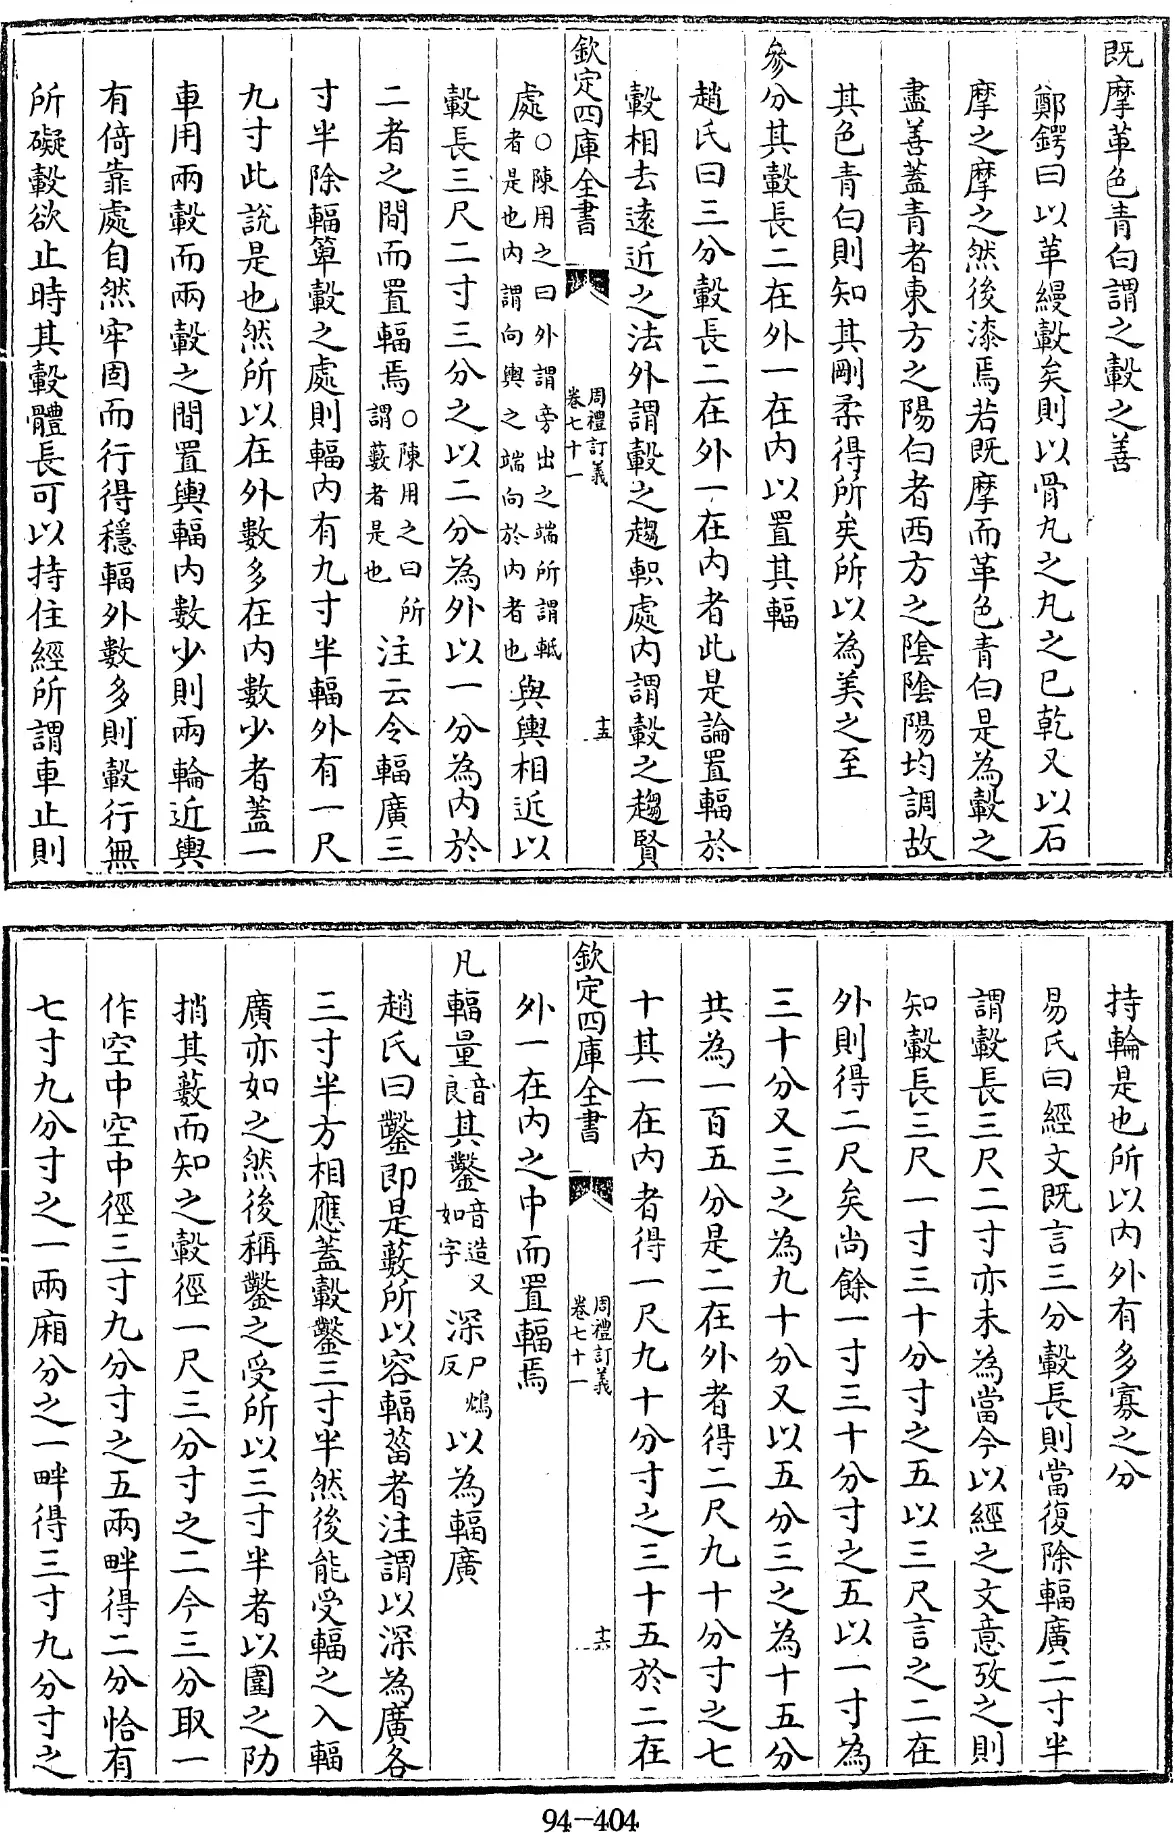 既摩革色青白謂之轂之善
鄭鍔曰以革縵轂矣則以骨丸之丸之已乾又以石
摩之摩之然後漆焉若既摩而革色青白是為轂之
盡善蓋青者東方之陽白者西方之陰陰陽均調故
其色青白則知其剛柔得所矣所以為美之至
參分其轂長二在外一在内以置其輻
趙氏曰三分轂長二在外一在内者此是論置輻於
轂相去遠近之法外謂轂之趨軹處内謂轂之趨賢
欽定四庫全書
周禮訂義
卷七十一
十五
處○陳用之曰外謂旁出之端所謂軧者是也内謂向輿之端向於内者也與輿相近以
轂長三尺二寸三分之以二分為外以一分為内於
二者之間而置輻焉○陳用之曰所謂藪者是也注云令輻廣三
寸半除輻箄轂之處則輻内有九寸半輻外有一尺
九寸此說是也然所以在外數多在内數少者蓋一
車用兩轂而兩轂之間置輿輻内數少則兩輪近輿
有倚靠處自然牢固而行得穩輻外數多則轂行無
所礙轂欲止時其轂體長可以持住經所謂車止則
持輪是也所以内外有多寡之分
易氏曰經文既言三分轂長則當復除輻廣二寸半
謂轂長三尺二寸亦未為當今以經之文意攷之則
知轂長三尺一寸三十分寸之五以三尺言之二在
外則得二尺矣尚餘一寸三十分寸之五以一寸為
三十分又三之為九十分又以五分三之為十五分
共為一百五分是二在外者得二尺九十分寸之七
十其一在内者得一尺九十分寸之三十五於二在
欽定四庫全書
周禮訂義
卷七十一
十六
外一在内之中而置輻焉
凡輻量音良其鑿音造又如字深尸鴆反以為輻廣
趙氏曰鑿即是藪所以容輻菑者注謂以深為廣各
三寸半方相應蓋轂鑿三寸半然後能受輻之入輻
廣亦如之然後稱鑿之受所以三寸半者以圍之阞
捎其藪而知之轂徑一尺三分寸之二今三分取一
作空中空中徑三寸九分寸之五兩畔得二分恰有
七寸九分寸之一兩廂分之一畔得三寸九分寸之
94-404